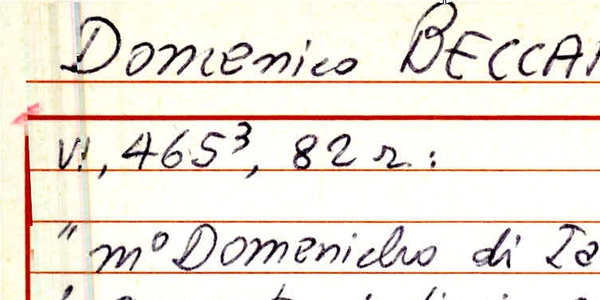 Domenico BECCA
V!, 465³, 82 r:
"mº Domenicho di Ia